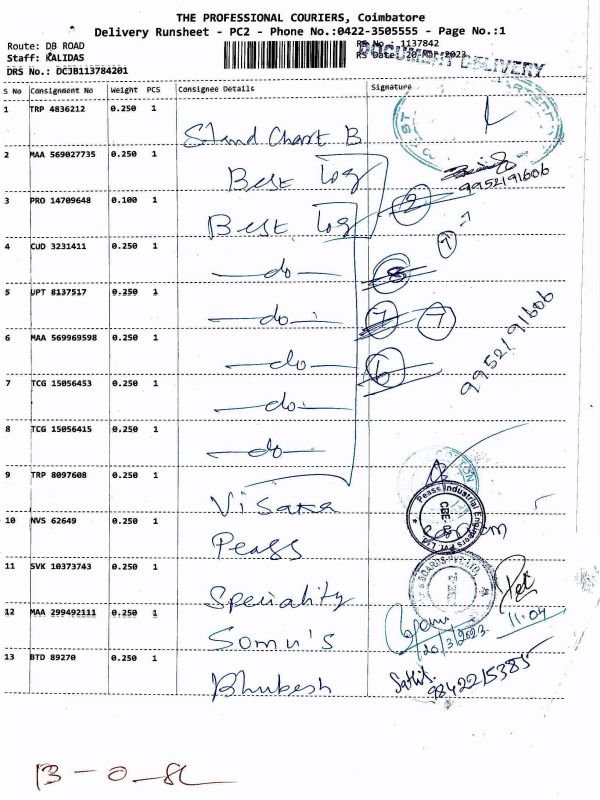 THE PROFESSIONAL COURIERS, Coimbatore
Delivery Runsheet - PC2 - Phone No.:0422-3505555 - Page No.:1
Route: DB ROAD
RS No : 1137842
Staff: KALIDAS
RS Date: 20-Mar-2023
DOCUMENT DELIVERY
DRS No.: DCJB113784201
S No Consignment No Weight PCS Consignee Details Signature
1 TRP 4836212 0.250 1 Stand Chart B
2 MAA 569027735 0.250 1 Best Log
9952191606
3 PRO 14709648 0.100 1 Best Log
4 CUD 3231411 0.250 1 —do— 8
5 UPT 8137517 0.250 1 —do— 7 7
9952191606
6 MAA 569969598 0.250 1 —do— 6
7 TCG 15056453 0.250 1 —do—
8 TCG 15056415 0.250 1 —do—
9 TRP 8097608 0.250 1 Visaka
Peass Industrial Engineers Pvt. Ltd
CBE
10 NVS 62649 0.250 1 Peass
11 SVK 10373743 0.250 1 Speciality
BOARDS PVT. LTD.
11.04
12 MAA 299492111 0.250 1 Somu's
20/3/2023
13 BTD 89270 0.250 1 Bhubesh
9842215385
13 - 0 -